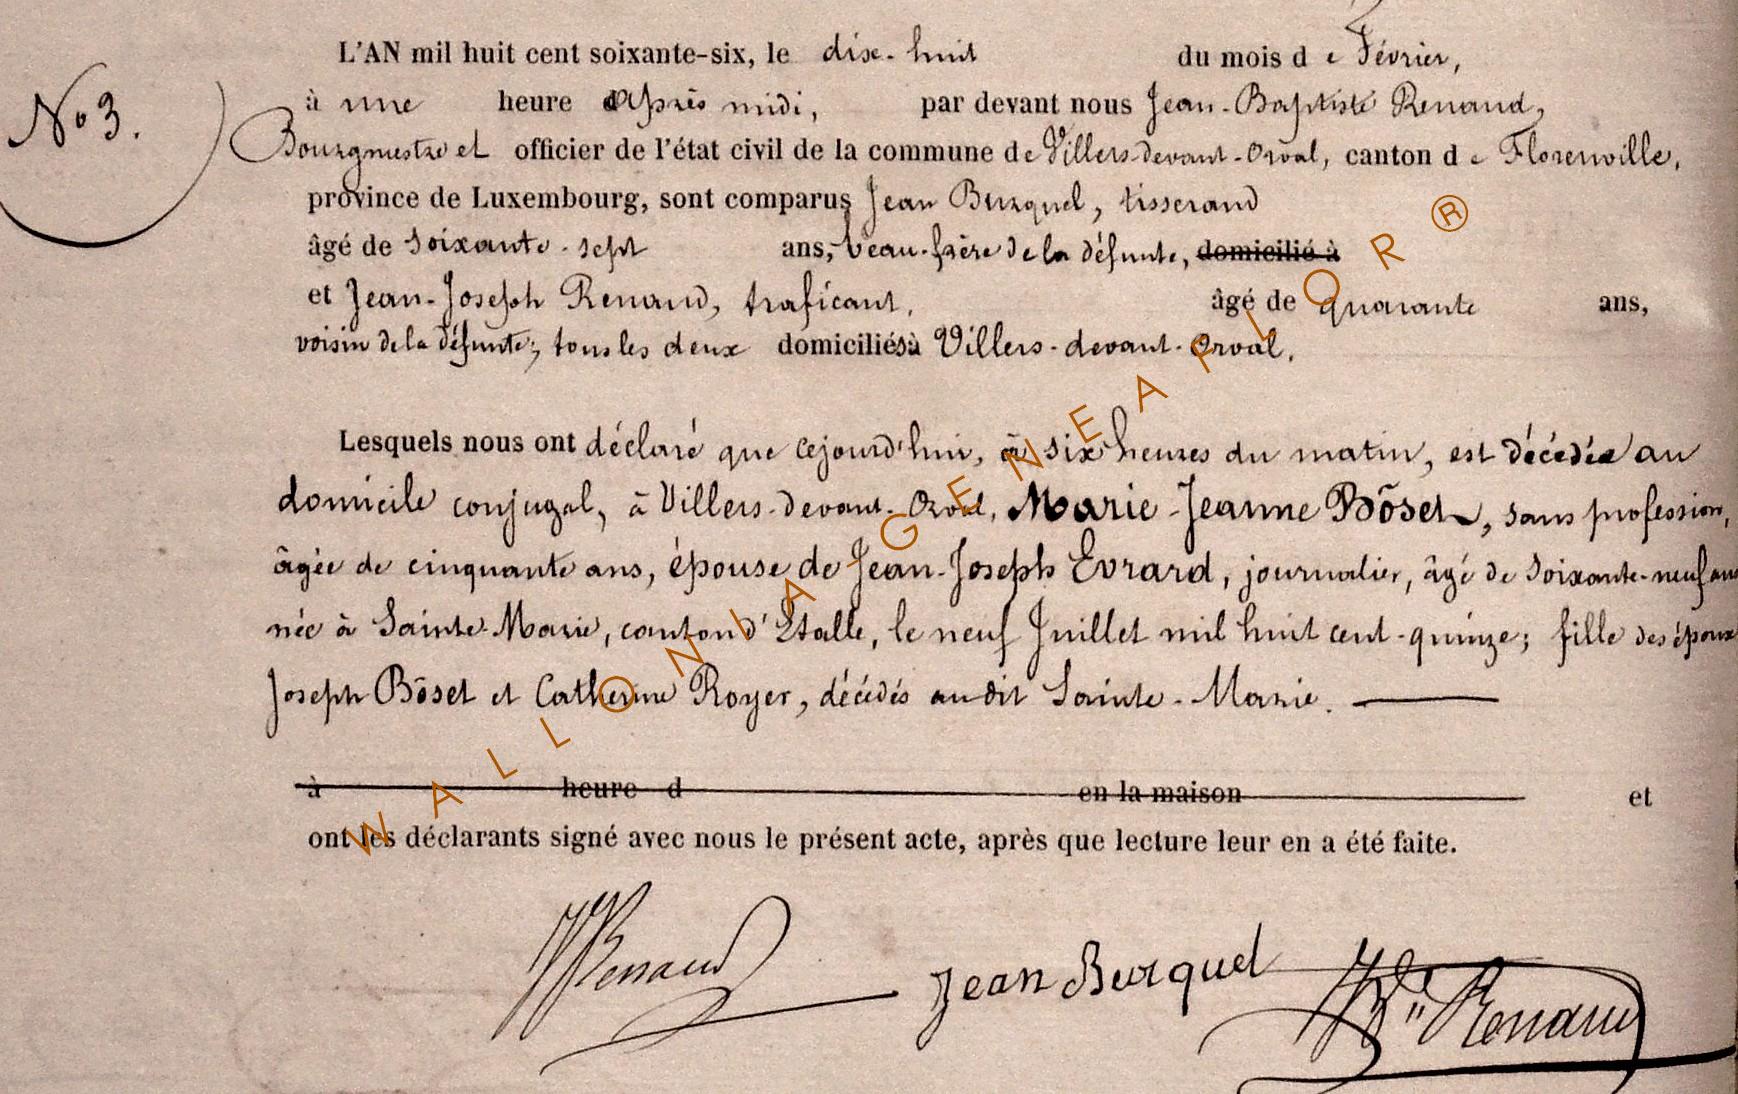 L'AN mil huit cent soixante-six, le dix-huit du mois de Février,
No 3.
à une heure après midi, par devant nous Jean-Baptiste Renaud,
Bourgmestre et officier de l'état civil de la commune de Villers-devant-Orval, canton de Florenville,
province de Luxembourg, sont comparus Jean Burquel, tisserand
âgé de soixante-sept ans, beau-frère de la défunte, domicilié à
et Jean-Joseph Renaud, traficant, âgé de quarante ans,
voisin de la défunte; tous les deux domiciliés à Villers-devant-Orval.
Lesquels nous ont déclaré que cejourd'hui, à six heures du matin, est décédée au
domicile conjugal, à Villers-devant-Orval, Marie-Jeanne Bôset, sans profession,
âgée de cinquante ans, épouse de Jean-Joseph Evrard, journalier, âgé de soixante-neuf ans
née à Sainte-Marie, canton d'Etalle, le neuf Juillet mil huit cent-quinze; fille des époux
Joseph Bôset et Catherine Royer, décédés audit Sainte-Marie.
à heure d en la maison et
ont les déclarants signé avec nous le présent acte, après que lecture leur en a été faite.
JJRenaud Jean Burquel JBte Renaud
WALLONIA GENEAFLOR ®